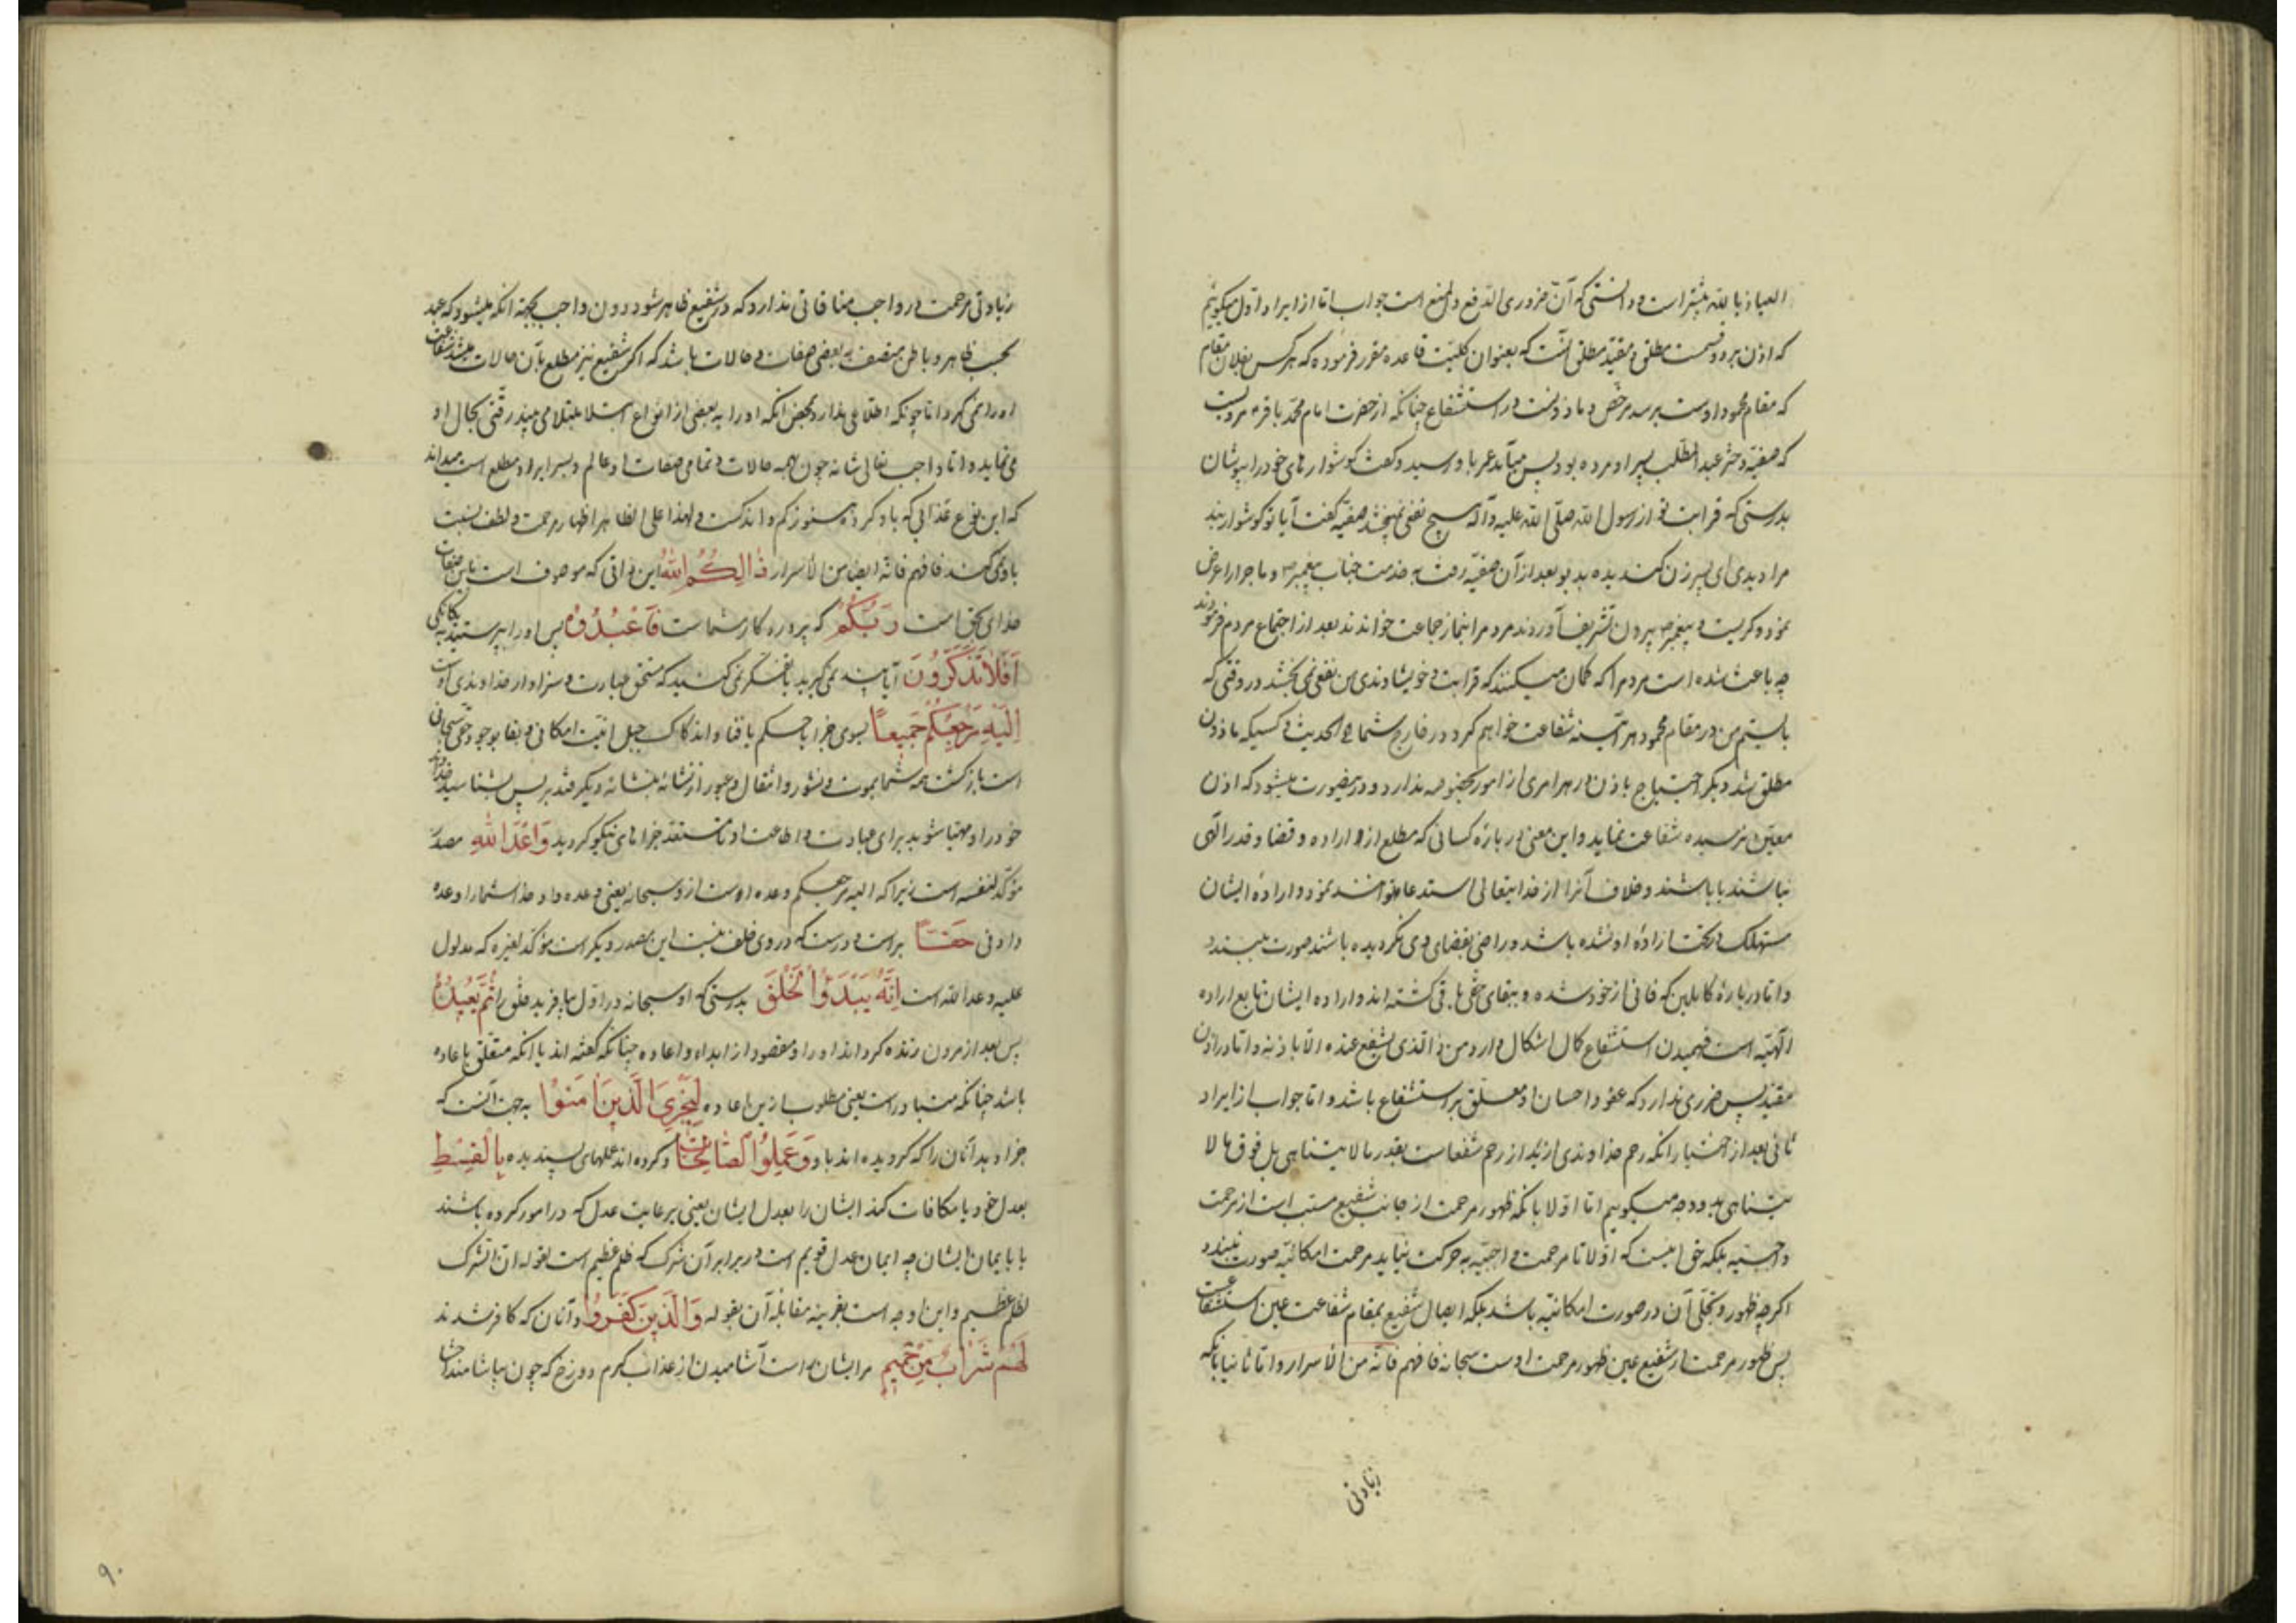 العیاذ بالله بیشتر است و دانستی که آن ضروری الدفع والمنع است جواب اما از ایراد اول میکوییم
که اذن بر دو قسمت مطلق و مقید مطلق آنست که بعنوان کلیت قاعده مقرر فرموده که هرکس بفلان مقام
که مقام محمود اوست برسد مرخص و ماذونست در استشفاع چنانکه از حضرت امام محمد باقر مرویست
که صفیه دختر عبد المطلب پسر او مرده بود پس میآمد عمر باو رسید و کفت کوشوارهای خود را بپوشان
بدرستی که قرابت تو از رسول الله صلی الله علیه وآله هیچ نفعی نمیبخشد صفیه کفت آیا تو کوشواره
مرا دیدی ای پسر زن کنـده بدبو بعد از آن صفیه رفت به خدمت جناب پیغمبر ص و ماجرا را عرض
نمود و کریست و پیغمبر ص بیرون تشریف آوردند مردم را بنماز جماعت خواندند بعد از اجتماع مردم فرمودند
چه باعث شده است مردم را که کمان میکنند که قرابت و خویشاوندی من نفعی نمی بخشد در وقتی که
بایستم من در مقام محمود هر آینه شفاعت خواهم کرد در شما الحدیث و کسیکه ماذون
مطلق شد دیکر احتیاج باذن در هر امری از امور بخصوصه ندارد و درینصورت میشود که اذن
معین نرسیده شفاعت نماید و این معنی در باره کسانی که مطلع از اراده و قضا و قدر الهی
نباشند یا باشند و خلاف آنرا از خدایتعالی استدعا توانند نمود و اراده ایشان
مستهلک در تحت اراده او نشده باشد و راضی بقضای وی نکردیده باشند صورت میبندد
و اما در باره کاملین که فانی از خود شده و ببقای حق باقی کشته اند و اراده ایشان تابع اراده
الهیه است فهمیدن استشفاع کمال اشکال دارد و من ذا الذی یشفع عنده الا باذنه و اما در اذن
مقید پس ضرری ندارد که عفو و احسان او معلق بر استشفاع باشد و اما جواب از ایراد
ثانی بعد از اختیار آنکه رحم خداوندی ازید از رحم شفعاست بقدر ما لا یتناهی بل فوق ما لا
یتناهی بدو وجه میکوییم اما اولا بانکه ظهور مرحمت از جانب شفیع مسبب است از مرحمت
واجبیه بلکه حق اینست که اولا تا مرحمت واجبیه به حرکت نیاید مرحمت امکانیه صورت نبندد
اکرچه ظهور و تجلی آن در صورت امکانیه باشد بلکه ایصال شفیع بمقام شفاعت عین استشفاعست
پس ظهور مرحمت از شفیع عین ظهور مرحمت اوست سبحانه فافهم فانه من الأسرار و اما ثانیا بانکه
زیادتی
زیادتی مرحمت در واجب منافاتی ندارد که در شفیع ظاهر شود دون واجب بجهة انکه میشود که عبد
بحسب ظاهر و باطن متصف به بعضی صفات و حالات باشد که اکر شفیع نیز مطلع بآن حالات میشد شفاعت
او را نمی کرد اما چونکه اطلاعی ندارد بمحض انکه او را به بعضی از انواع ابتلا مبتلا می بیند رقتی بحال او
می نماید و اما واجب تعالی شانه چون بهمه حالات و تمامی صفات او عالم و بسرایر او مطلع است میداند
که این نوع عذابی که باو کرده هنوز کم و اندکست و لهذا علی الظاهر اظهار مرحمت و لطف نسبت
باو نمی کند فافهم فانه ایضا من الأسرار ذٰلِکُمُ اللّٰهُ این ذاتی که موصوف است باین صفات
خدای بحق است رَبُّکُمْ که پروردکار شماست فَاعْبُدُوهُ پس او را بپرستید به یکانکی
اَفَلَا تَذَکَّرُونَ آیا پند نمی کیرید یا تفکر نمی کنید که مستحق عبادت و سزاوار خداوندی اوست
اِلَیْهِ مَرْجِعُکُمْ جَمِیعًا بسوی جزا یا حکم یا فنا و اندکاک جبل انیت امکانی و بقا بوجود حق سبحانی
است بازکشت همه شما بموت و نشور و انتقال و عبور از نشانه بنشانه دیکر فتدبر پس بشناسید خدای
خود را و مهیا شوید برای عبادت و اطاعت او تا مستعد جزاهای نیکو کردید وَعْدَ اللّٰهِ مصدر
مؤکد لنفسه است زیرا که الیه مرجعکم وعده اوست از و سبحانه یعنی وعده داد خدا شما را وعده
دادنی حَقًّا براست و درست که در وی خلف نیست این مصدر دیکر است مؤکد لغیره که مدلول
علیه وعد الله است اِنَّهُ یَبْدَؤُا الْخَلْقَ بدرستی که او سبحانه در اول میافریند خلق را ثُمَّ یُعِیدُهُ
پس بعد از مردن زنده کرداند او را و مقصود از ابداء و اعاده چنانکه کفته اند یا انکه متعلق باعاده
باشد چنانکه متبادر است یعنی مطلوب ازین اعاده لِیَجْزِیَ الَّذِینَ اٰمَنُوا به جهت آنست که
جزا دهد آنان را که کرویده اند باو وَعَمِلُوا الصَّالِحَاتِ و کرده اند عملهای پسندیده بِالْقِسْطِ
بعدل خود یا مکافات کند ایشان را بعدل ایشان یعنی برعایت عدل که در امور کرده باشند
یا بایمان ایشان چه ایمان عدل قویم است در برابر آن شرک که ظلم عظیم است لقوله ان الشرک
لظلم عظیم و این اوجه است بقرینه مقابله آن بقوله وَالَّذِینَ کَفَرُوا و آنان که کافر شدند
لَهُمْ شَرَابٌ مِنْ حَمِیمٍ مر ایشان راست آشامیدن از عذاب کرم دوزخ که چون بیاشامند
۹۰